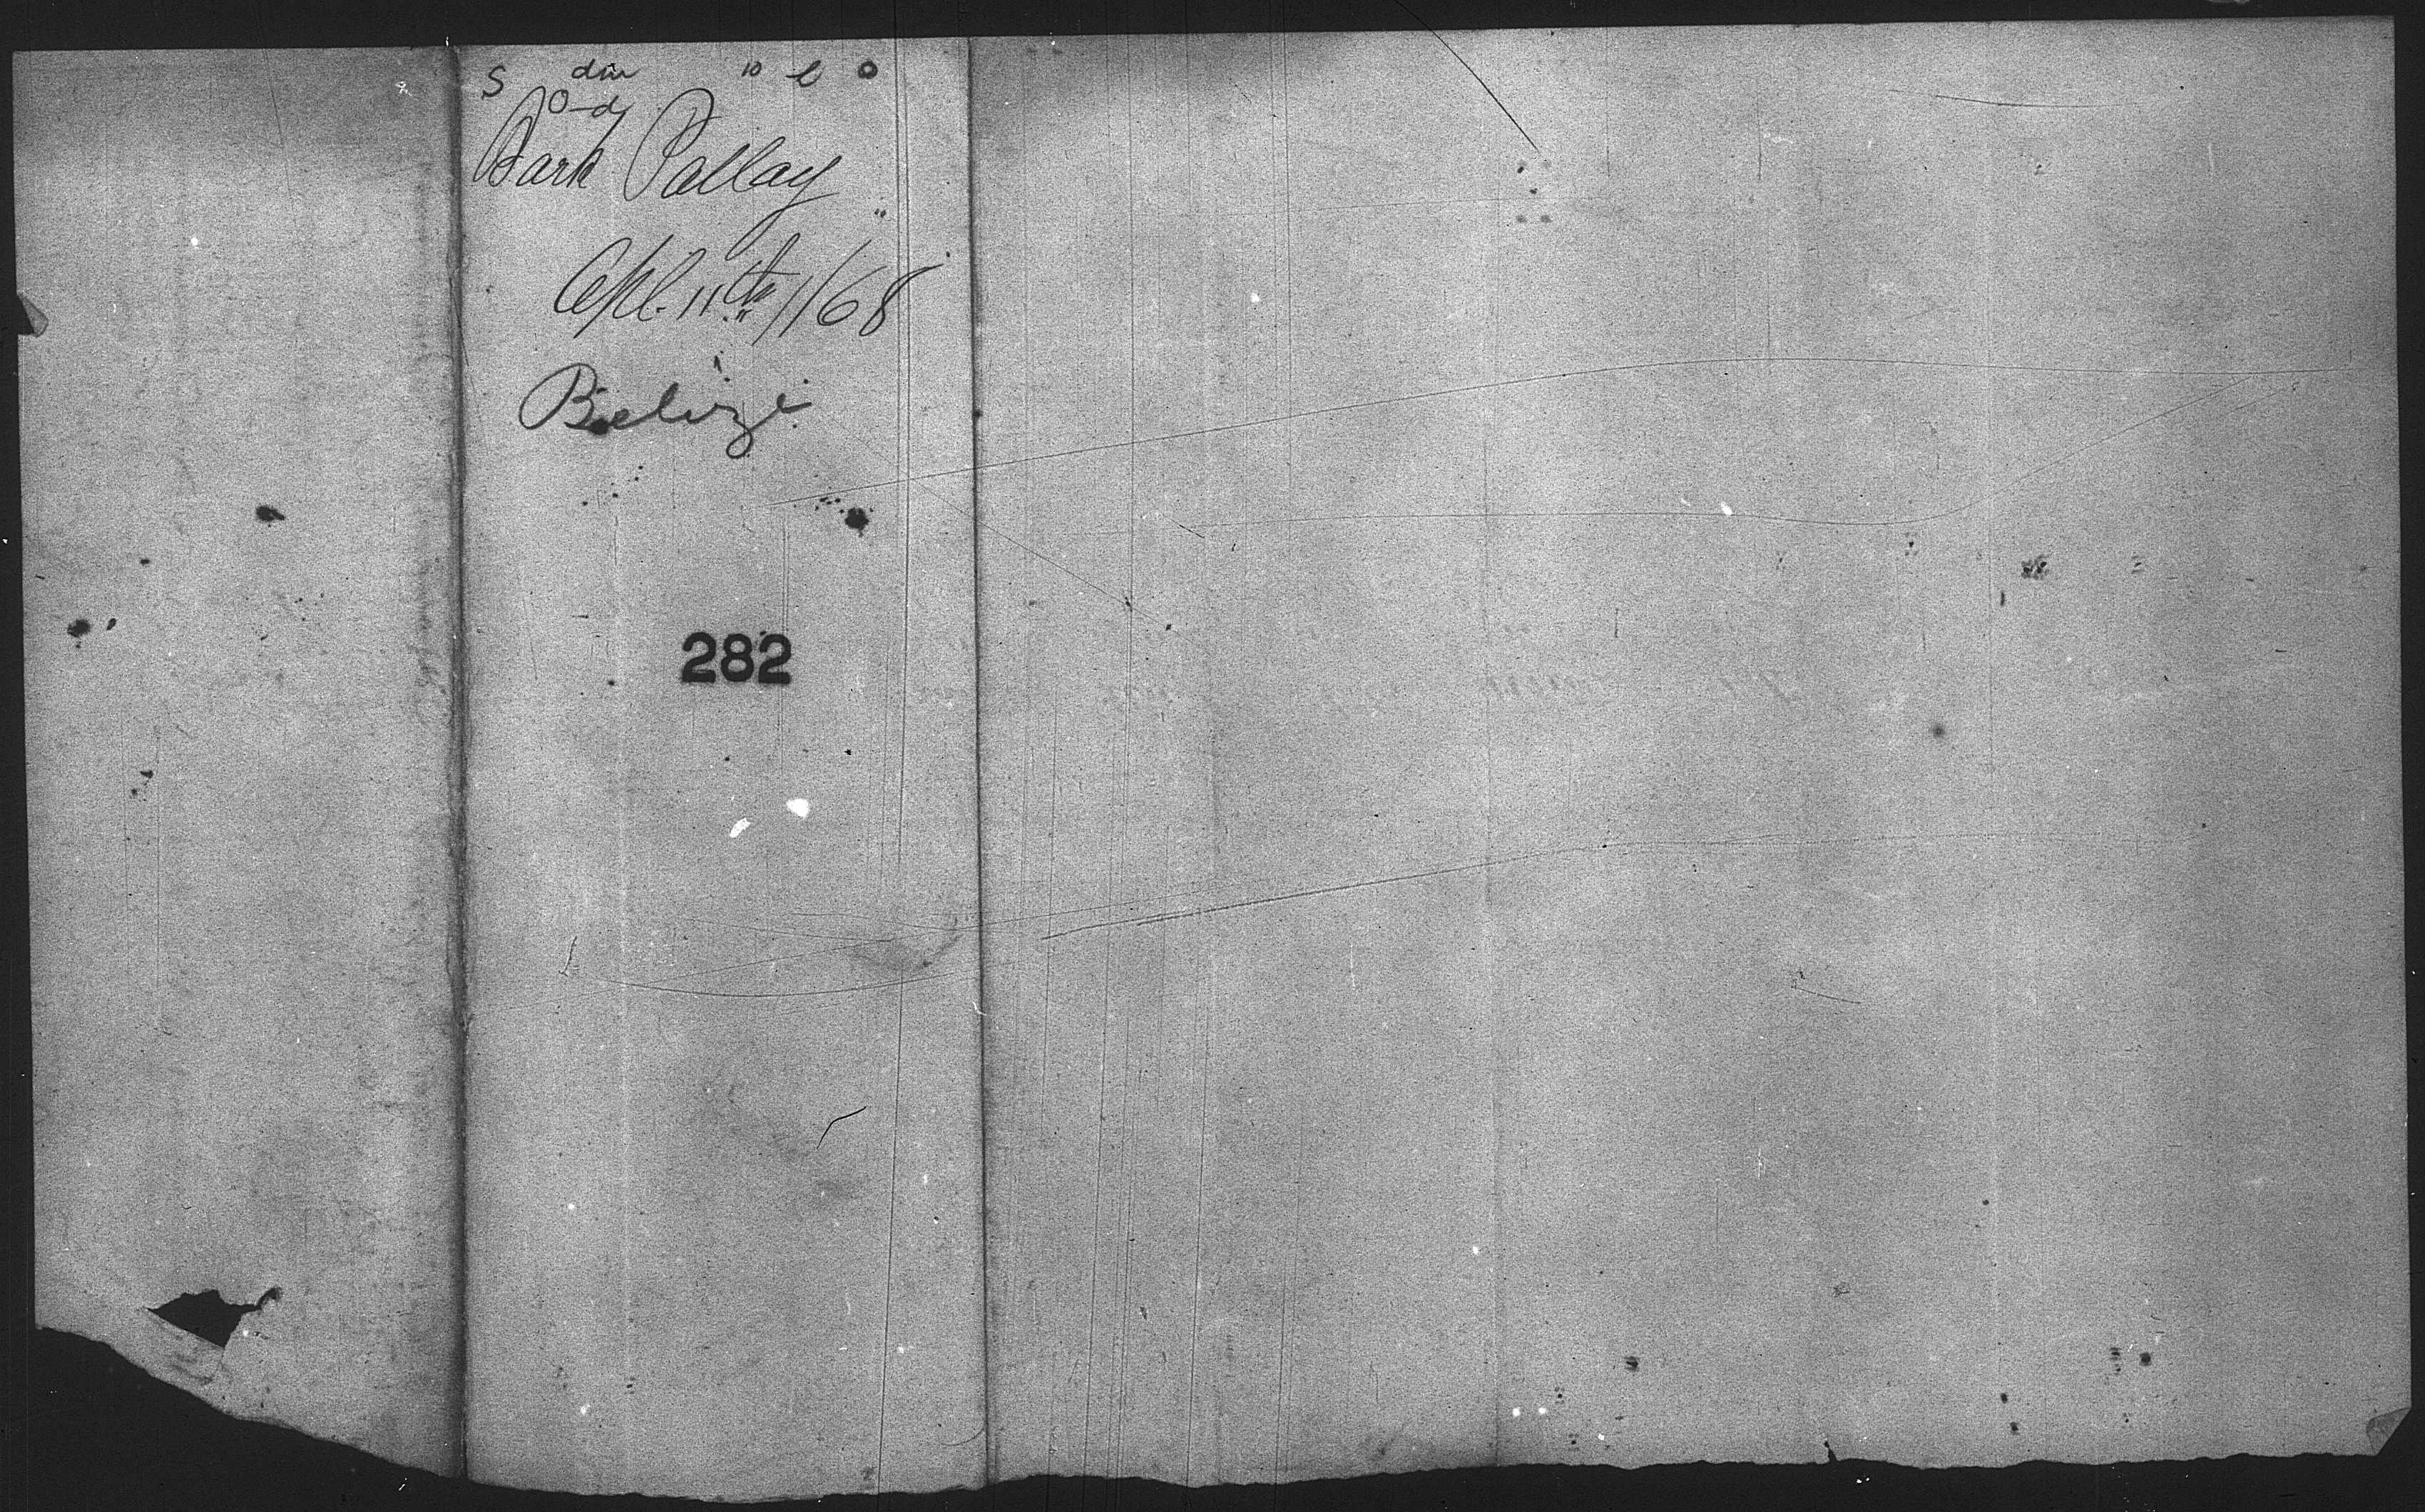 S 10 l o
Bark Pallay
Apl. 11th /68
Belize
282